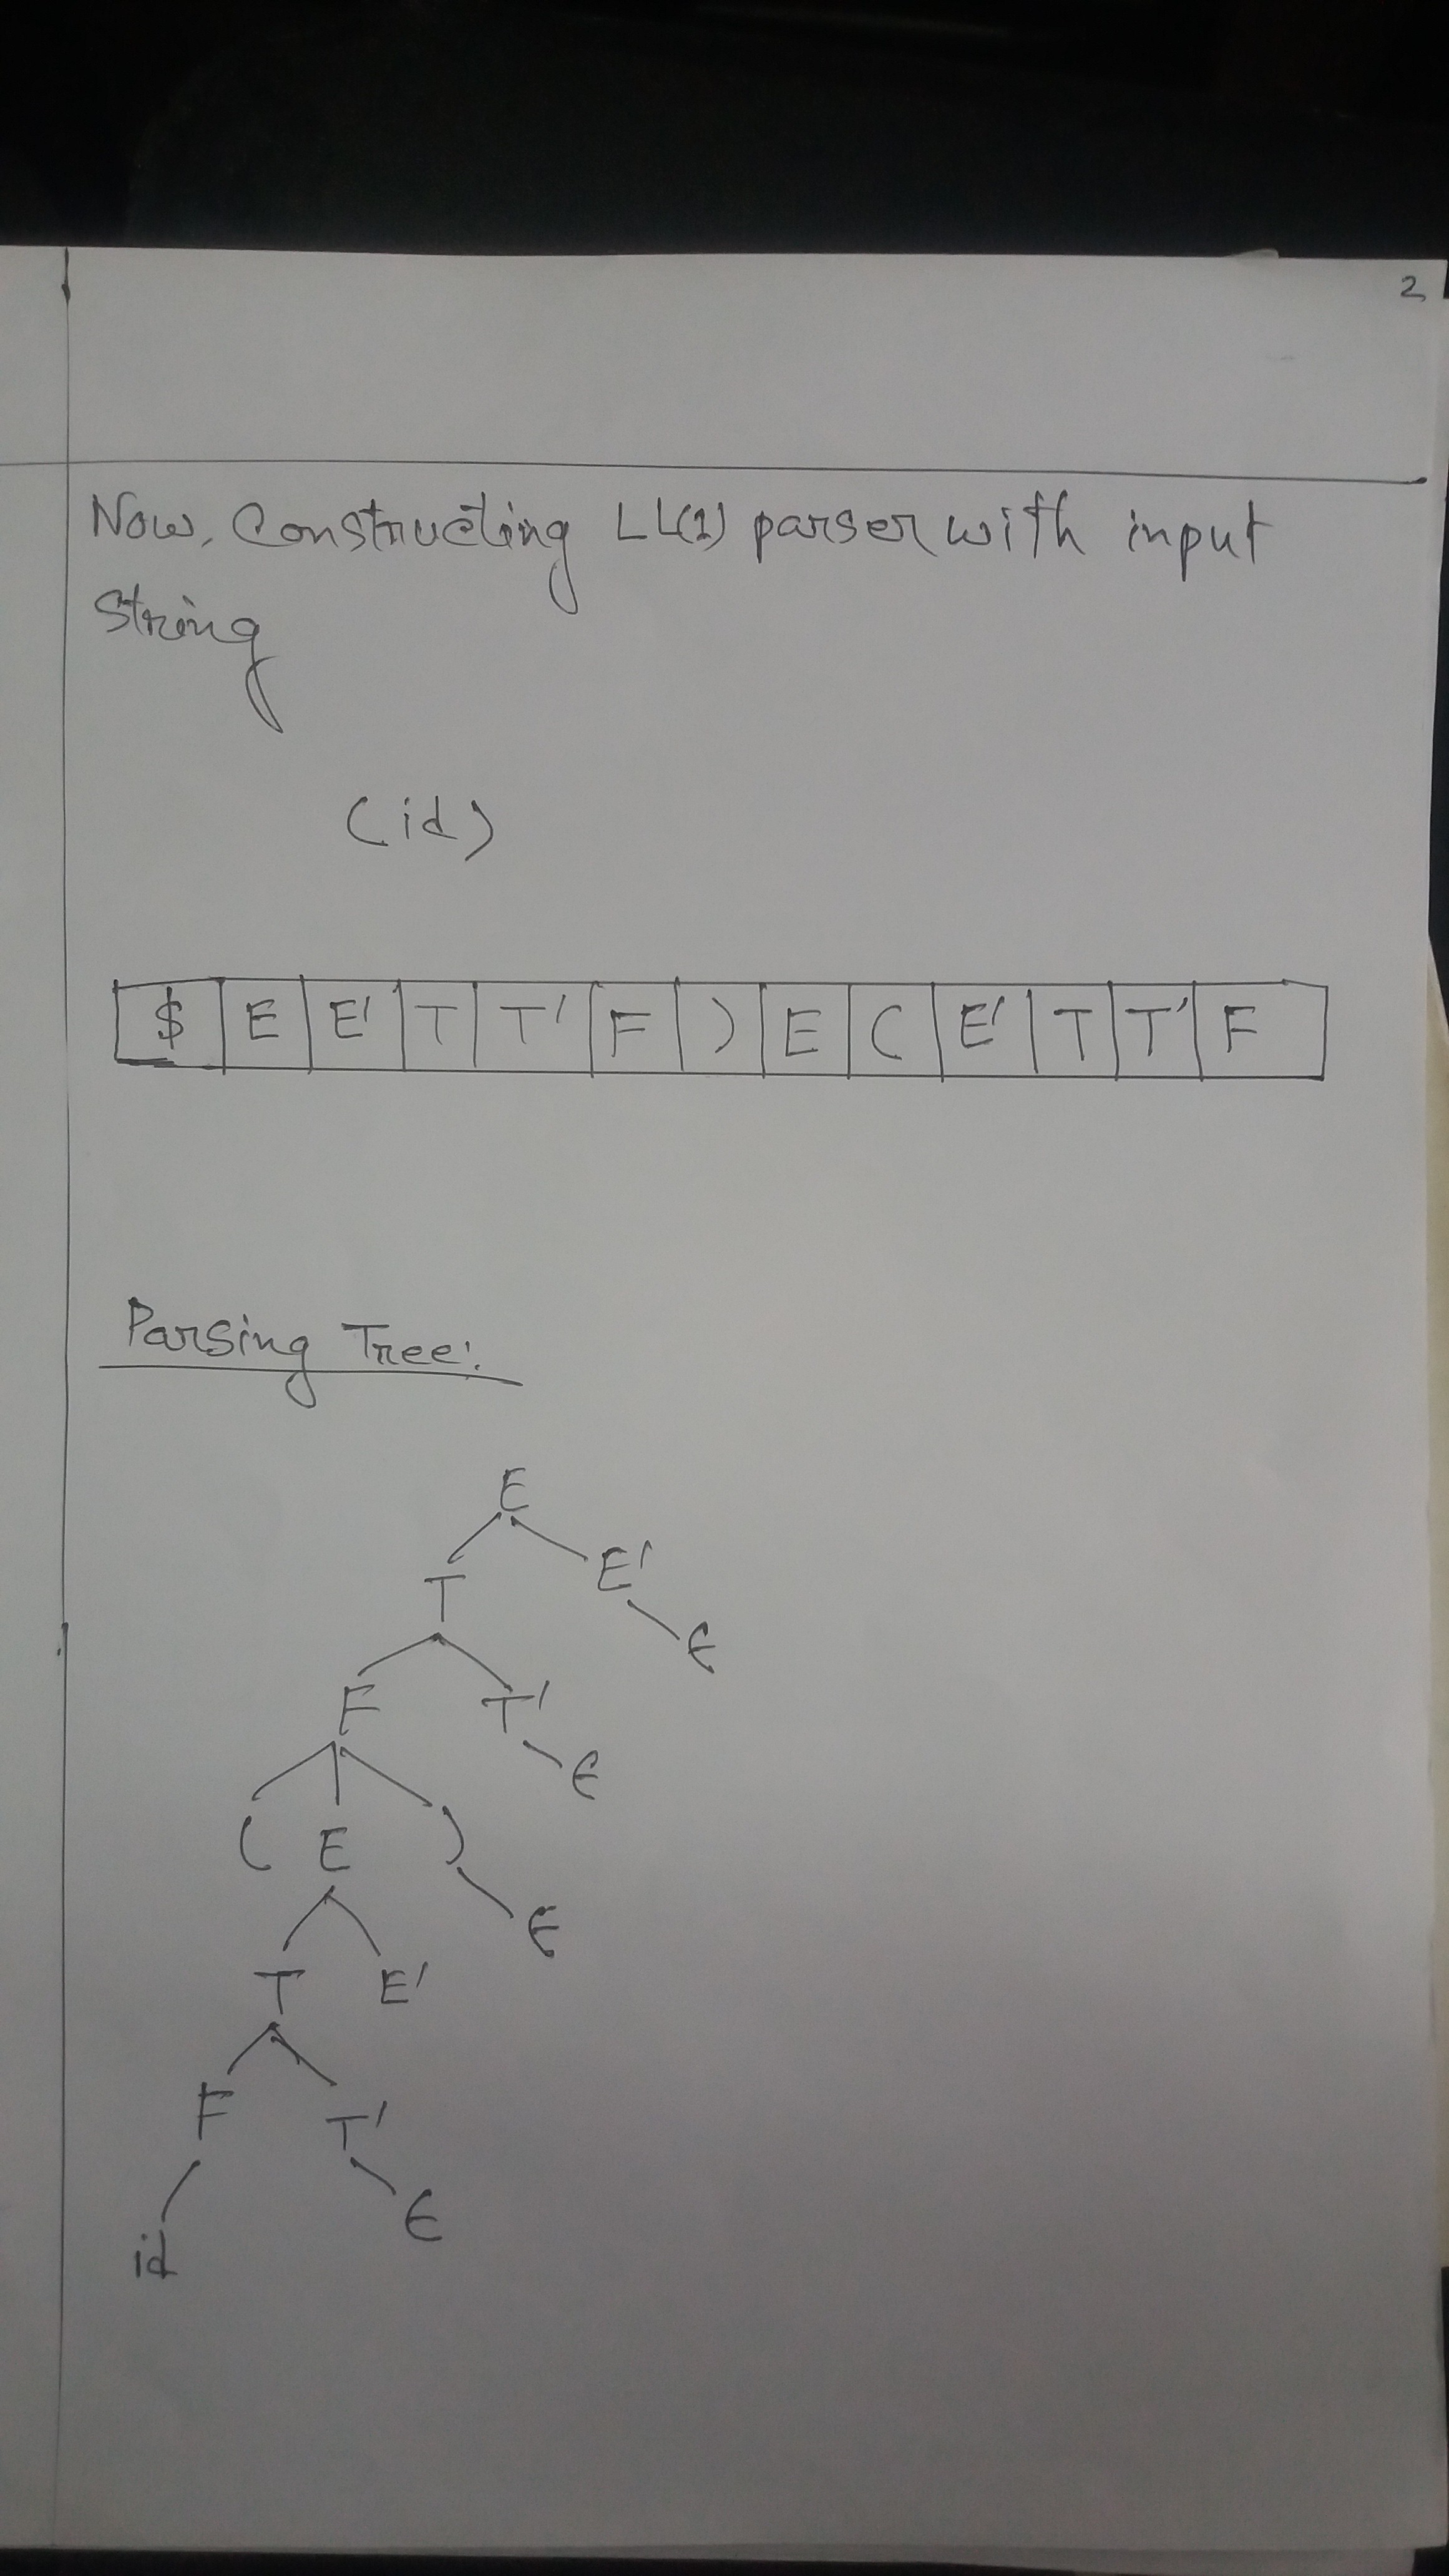 2
Now, Constructing LL(1) parser with input
String
(id)
$ E E' T T' F ) E ( E' T T' F
Parsing Tree:
E
T E'
ϵ
F T'
ϵ
( E )
ϵ
T E'
F T'
ϵ
id